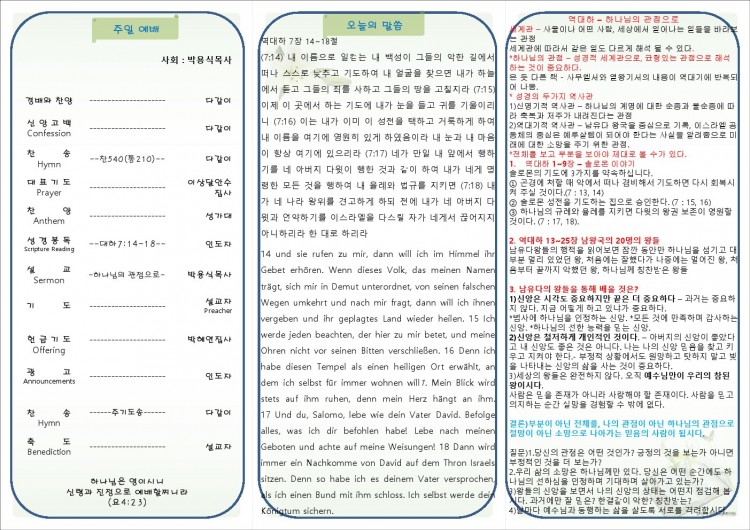 주일 예배
사회 : 박용식목사
경배와 찬양 ------------------ 다같이
신 앙 고 백 ------------------ 다같이
Confession
찬 송 --찬540(통210)-- 다같이
Hymn
대 표 기 도 ------------------ 이상달안수
Prayer 집사
찬 양 ------------------ 성가대
Anthem
성 경 봉 독 --대하7:14-18-- 인도자
Scripture Reading
설 교 -하나님의 관점으로- 박용식목사
Sermon
기 도 ------------------ 설교자
Preacher
헌 금 기 도 ------------------ 박혜연집사
Offering
광 고 ------------------ 인도자
Announcements
찬 송 -----주기도송------ 다같이
Hymn
축 도 ------------------ 설교자
Benediction
하나님은 영이시니
신령과 진정으로 예배할찌니라
(요4:23)
오늘의 말씀
역대하 7장 14~18절
(7:14) 내 이름으로 일컫는 내 백성이 그들의 악한 길에서
떠나 스스로 낮추고 기도하여 내 얼굴을 찾으면 내가 하늘
에서 듣고 그들의 죄를 사하고 그들의 땅을 고칠지라 (7:15)
이제 이 곳에서 하는 기도에 내가 눈을 들고 귀를 기울이리
니 (7:16) 이는 내가 이미 이 성전을 택하고 거룩하게 하여
내 이름을 여기에 영원히 있게 하였음이라 내 눈과 내 마음
이 항상 여기에 있으리라 (7:17) 네가 만일 내 앞에서 행하
기를 네 아버지 다윗이 행한 것과 같이 하여 내가 네게 명
령한 모든 것을 행하여 내 율례와 법규를 지키면 (7:18) 내
가 네 나라 왕위를 견고하게 하되 전에 내가 네 아버지 다
윗과 언약하기를 이스라엘을 다스릴 자가 네게서 끊어지지
아니하리라 한 대로 하리라
14 und sie rufen zu mir, dann will ich im Himmel ihr
Gebet erhören. Wenn dieses Volk, das meinen Namen
trägt, sich mir in Demut unterordnet, von seinen falschen
Wegen umkehrt und nach mir fragt, dann will ich ihnen
vergeben und ihr geplagtes Land wieder heilen. 15 Ich
werde jeden beachten, der hier zu mir betet, und meine
Ohren nicht vor seinen Bitten verschließen. 16 Denn ich
habe diesen Tempel als einen heiligen Ort erwählt, an
dem ich selbst für immer wohnen will1. Mein Blick wird
stets auf ihm ruhen, denn mein Herz hängt an ihm.
17 Und du, Salomo, lebe wie dein Vater David. Befolge
alles, was ich dir befohlen habe! Lebe nach meinen
Geboten und achte auf meine Weisungen! 18 Dann wird
immer ein Nachkomme von David auf dem Thron Israels
sitzen. Denn so habe ich es deinem Vater versprochen,
als ich einen Bund mit ihm schloss. Ich selbst werde dein
Königtum sichern.
역대하 – 하나님의 관점으로
세계관 – 사물이나 어떤 사람, 세상에서 일어나는 일들을 바라보
는 관점
세계관에 따라서 같은 일도 다르게 해석 될 수 있다.
*하나님의 관점 – 성경적 세계관으로, 균형있는 관점으로 해석
하는 것이 중요하다.
은 듯 다른 책 - 사무엘서와 열왕기서의 내용이 역대기에 반복되
어 나옴.
* 성경의 두가지 역사관
1)신명기적 역사관 – 하나님의 계명에 대한 순종과 불순종에 따
라 축복과 저주가 내려진다는 관점
2)역대기적 역사관 – 남유다 왕국을 중심으로 기록, 이스라엘 공
동체의 중심은 예루살렘이 되어야 한다는 사실을 알려줌으로 미
래에 대한 소망을 주기 위한 관점.
*전체를 보고 부분을 보아야 제대로 볼 수가 있다.
1. 역대하 1~9장 – 솔로몬 이야기
솔로몬의 기도에 3가지를 약속하십니다.
① 곤경에 처할 때 악에서 떠나 겸비해서 기도하면 다시 회복시
켜 주실 것이다.(7 : 13, 14)
② 솔로몬 성전을 기도하는 집으로 승인한다.(7 : 15, 16)
③ 하나님의 규례와 율례를 지키면 다윗의 왕권 보존이 영원할
것이다.(7 : 17, 18).
2. 역대하 13~25장 남왕국의 20명의 왕들
남유다왕들의 행적을 읽어보면 잠깐 동안만 하나님을 섬기고 대
부분 멀리 있었던 왕, 처음에는 잘했다가 나중에는 멀어진 왕, 처
음부터 끝까지 악했던 왕, 하나님께 칭찬받은 왕들
3. 남유다의 왕들을 통해 배울 것은?
1)신앙은 시작도 중요하지만 끝은 더 중요하다 – 과거는 중요하
지 않다. 지금 어떻게 하고 있냐가 중요하다.
*범사에 하나님을 인정하는 신앙. *모든 것에 만족하며 감사하는
신앙. *하나님의 선한 능력을 믿는 신앙.
2)신앙은 철저하게 개인적인 것이다. – 아버지의 신앙이 좋았다
고 내 신앙도 좋은 것은 아니다. 나는 나의 신앙 믿음을 찾고 키
우고 지켜야 한다.- 부정적 상황에서도 원망하고 탓하지 말고 빛
을 나타내는 신앙의 삶을 사는 것이 중요하다.
3)세상의 왕들은 완전하지 않다. 오직 예수님만이 우리의 참된
왕이시다.
사람은 믿을 존재가 아니라 사랑해야 할 존재이다. 사람을 믿고
의지하는 순간 실망을 경험할 수 밖에 없다.
결론)부분이 아닌 전체를, 나의 관점이 아닌 하나님의 관점으로
절망이 아닌 소망으로 나아가는 믿음의 사람이 됩시다.
질문)1.당신의 관점은 어떤 것인가? 긍정의 것을 보는가 아니면
부정적인 것을 더 보는가?
2.우리 삶의 소망은 하나님께만 있다. 당신은 어떤 순간에도 하
나님의 선하심을 인정하며 기대하며 살아가고 있는가?
3)왕들의 신앙을 보면서 나의 신앙의 상태는 어떤지 점검해 봅
시다. 과거에만 잘 믿은? 한결같이 악한? 칭찬받는?
4)날마다 예수님과 동행하는 삶을 살도록 서로를 격려합시다.